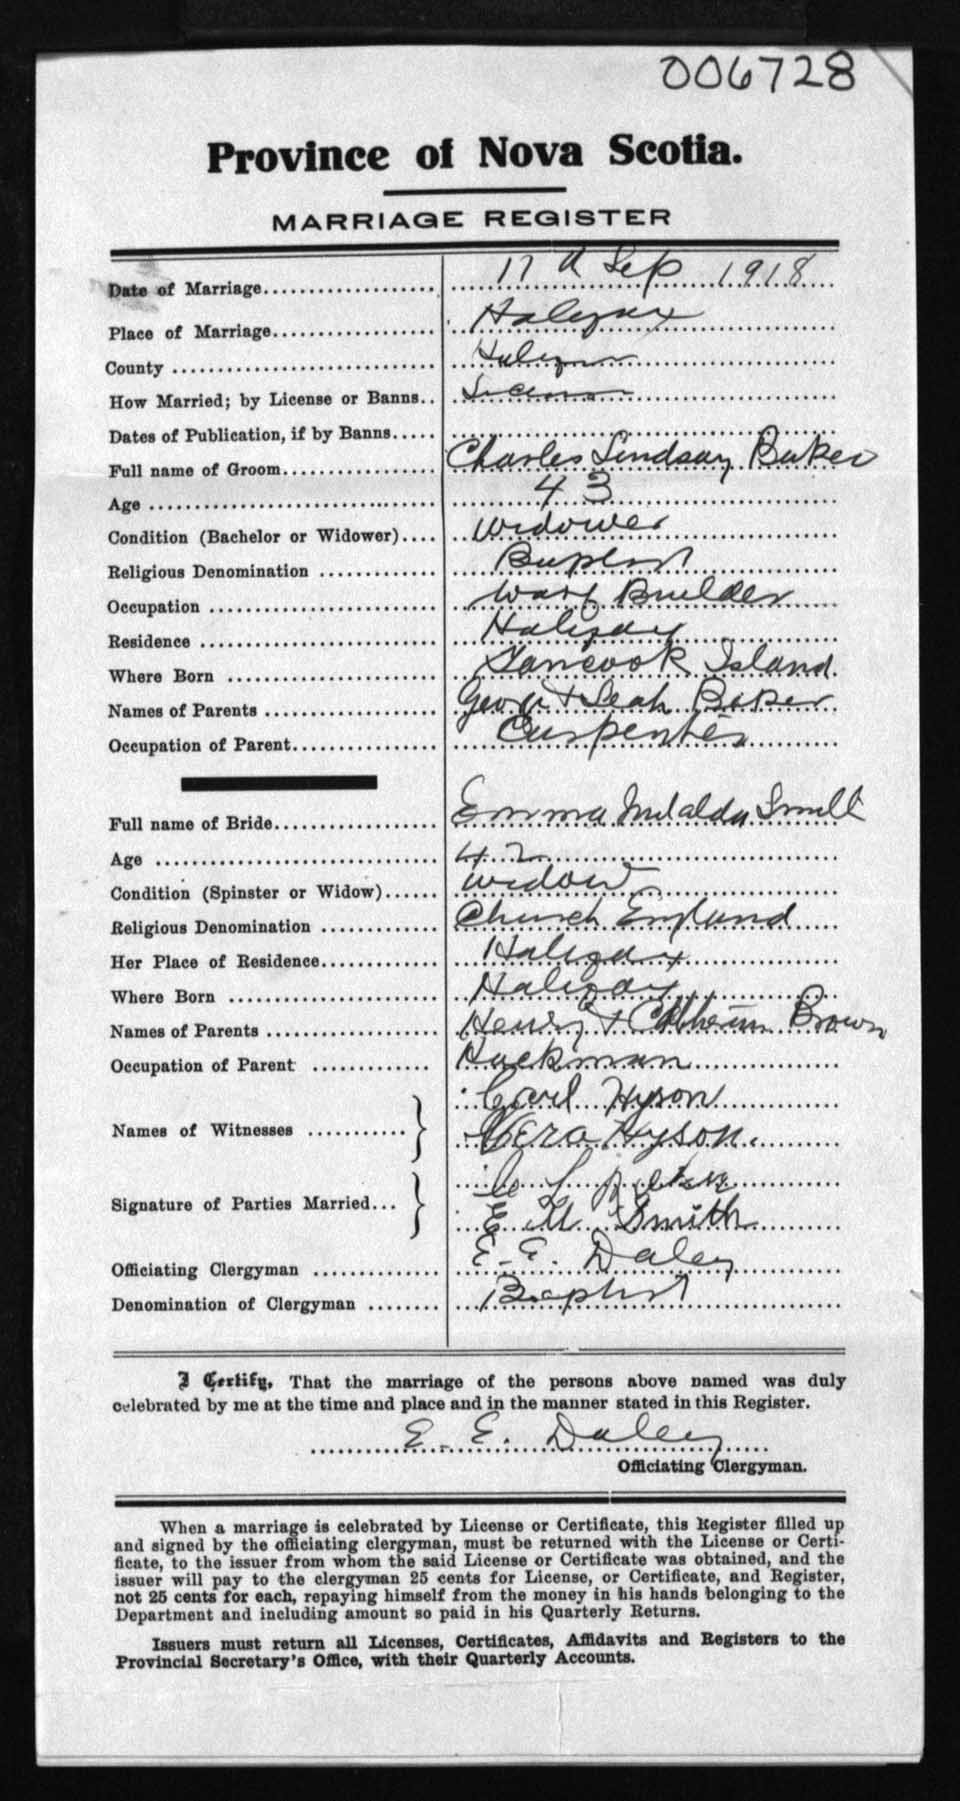 006728
Province of Nova Scotia.
MARRIAGE REGISTER
Date of Marriage 17th Sep 1918
Place of Marriage Halifax
County Halifax
How Married; by License or Banns License
Dates of Publication, if by Banns
Full name of Groom Charles Lindsay Baker
Age 43
Condition (Bachelor or Widower) Widower
Religious Denomination Baptist
Occupation Warf Builder
Residence Halifax
Where Born Tancook Island
Names of Parents George & Leah Baker
Occupation of Parent Carpenter
Full name of Bride Emma Smith
Age 42
Condition (Spinster or Widow) Widow
Religious Denomination Church England
Her Place of Residence Halifax
Where Born Halifax
Names of Parents Henry & Brown
Occupation of Parent Hackman
Names of Witnesses Carl Hyson
Vera Hyson.
Signature of Parties Married C L Baker
E M Smith
Officiating Clergyman E. E. Daley
Denomination of Clergyman Baptist
I Certify, That the marriage of the persons above named was duly
celebrated by me at the time and place and in the manner stated in this Register.
E. E. Daley
Officiating Clergyman.
When a marriage is celebrated by License or Certificate, this Register filled up
and signed by the officiating clergyman, must be returned with the License or Certi-
ficate, to the issuer from whom the said License or Certificate was obtained, and the
issuer will pay to the clergyman 25 cents for License, or Certificate, and Register,
not 25 cents for each, repaying himself from the money in his hands belonging to the
Department and including amount so paid in his Quarterly Returns.
Issuers must return all Licenses, Certificates, Affidavits and Registers to the
Provincial Secretary's Office, with their Quarterly Accounts.